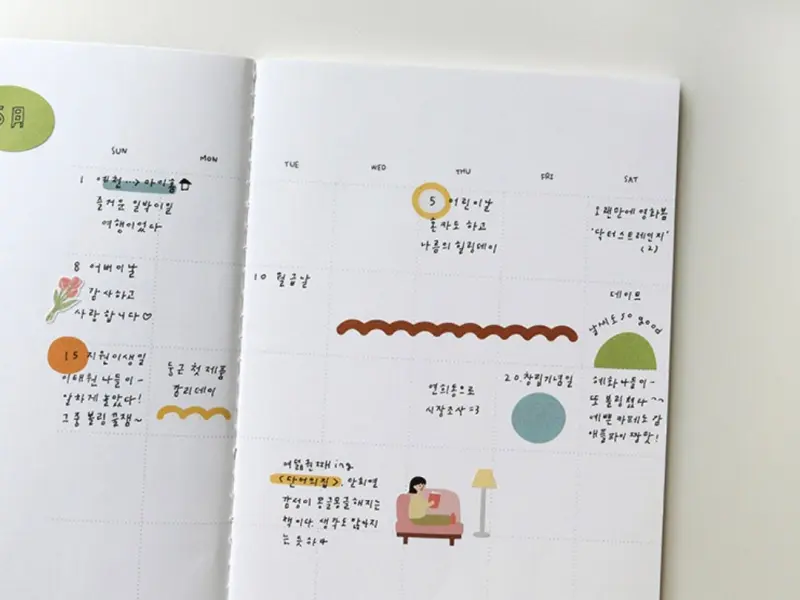 5月
SUN
MON
TUE
WED
THU
FRI
SAT
1
즐거운 일박이일
여행이었다
5 어린이날
혼카도 하고
나름의 힐링데이
오랜만에 영화봄
'닥터스트레인지'
(2)
8 어버이날
감사하고
사랑합니다♡
10 월급날
데이트
날씨도 so good
15 지원이생일
이태원 나들이-
알차게 놀았다!
그중 볼링 꿀잼~
둥근 첫 제품
촬리데이
연희동으로
시장조사 =3
20.창립기념일
혜화나들이-
또 볼링쳤다 ^^
예쁜 카페도 감
애플파이 짱맛!
ing
<단어의집>, 안희연
감성이 몽글몽글해지는
책이다. 생각도 많아지
는 듯 하다